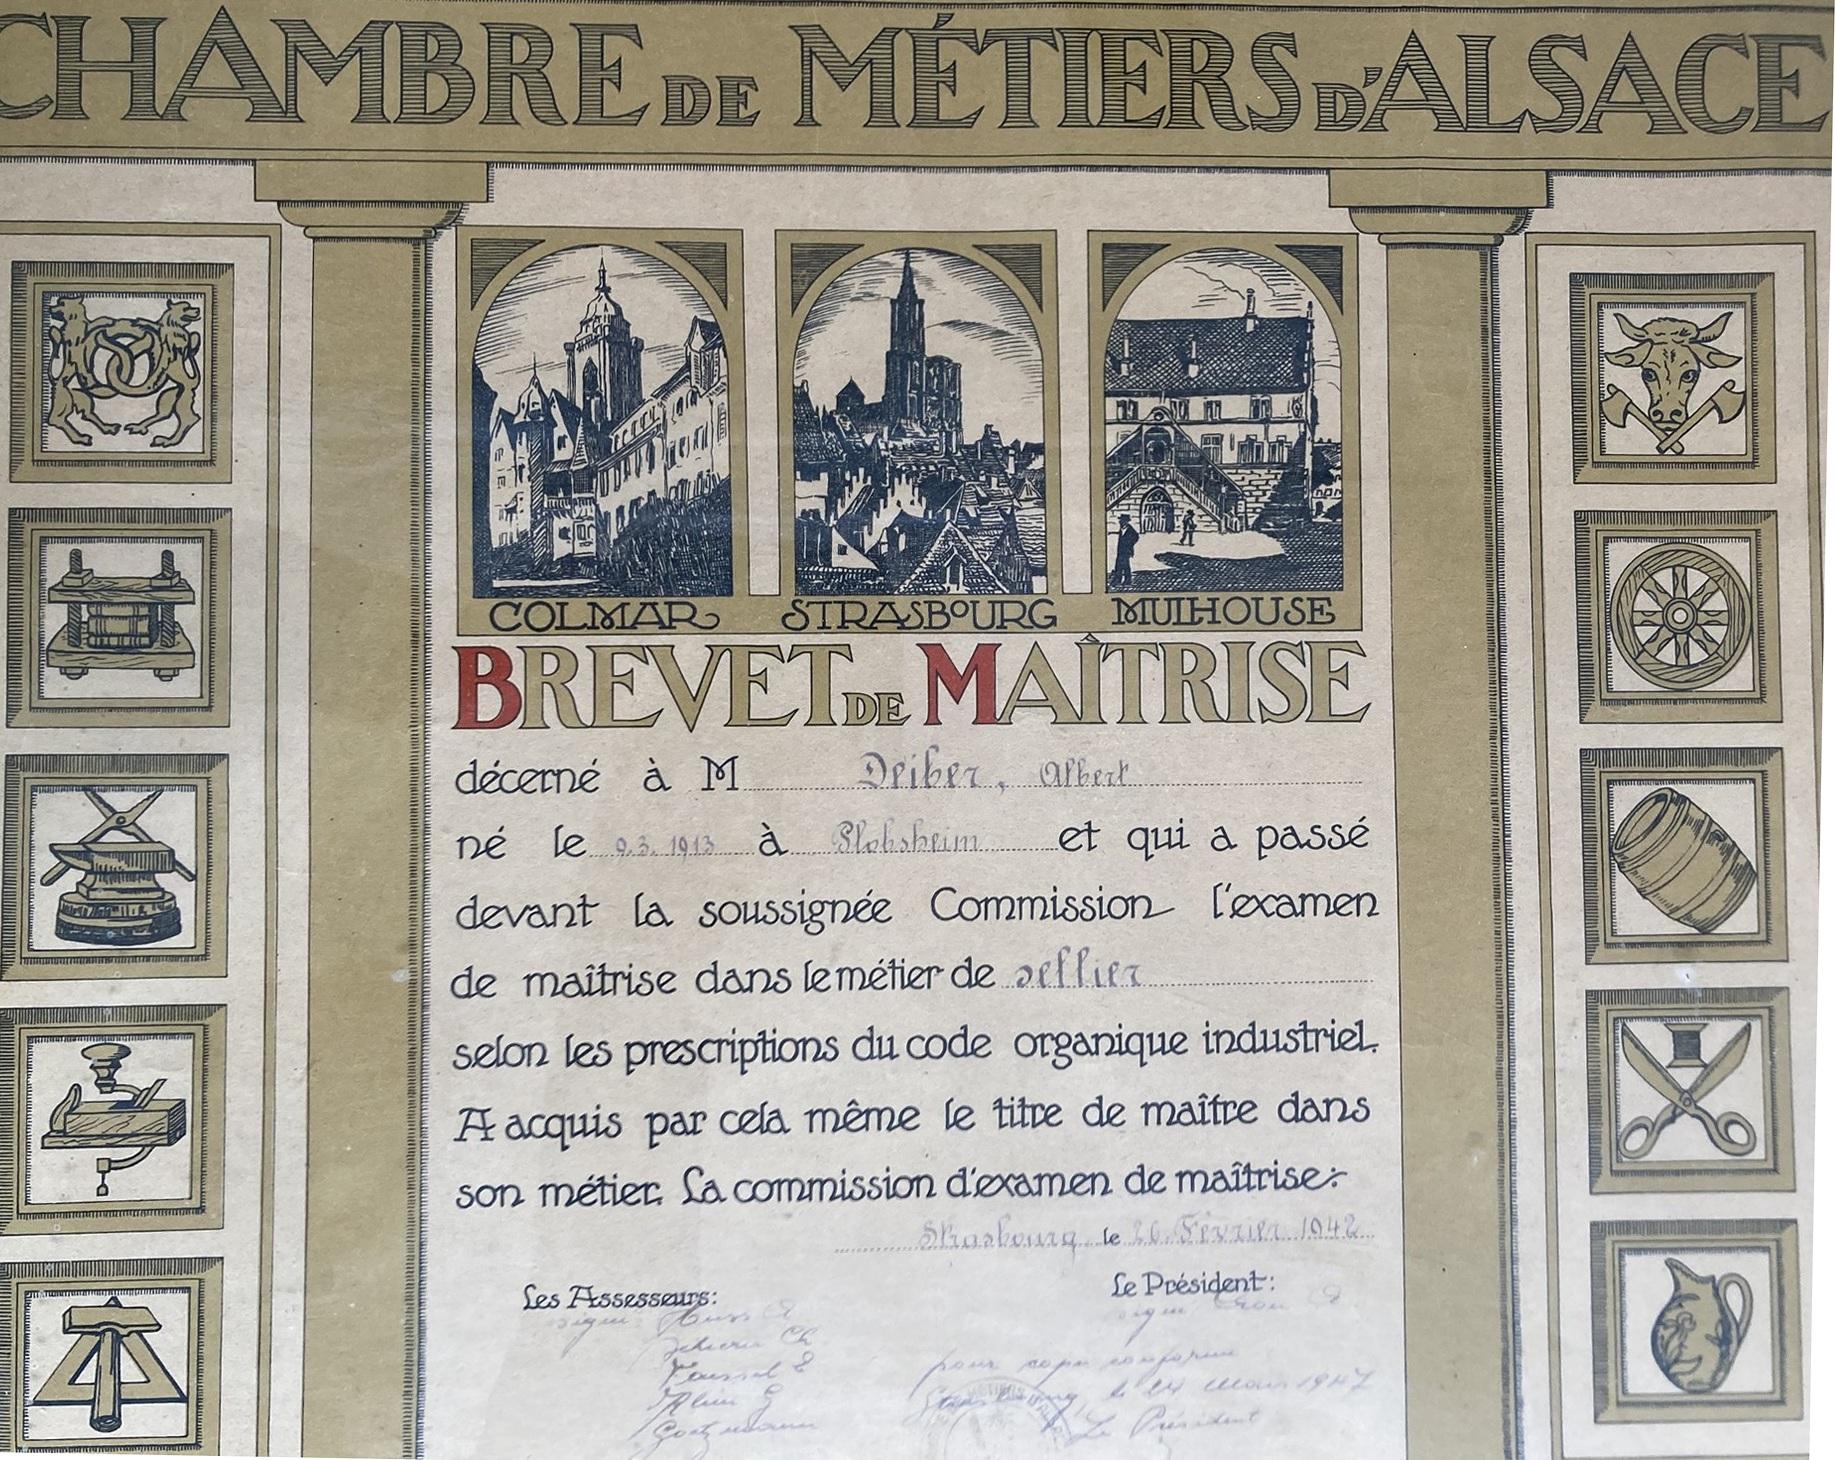 CHAMBRE DE MÉTIERS D'ALSACE
COLMAR STRASBOURG MULHOUSE
BREVET DE MAÎTRISE
décerné à M Deiber, Albert
né le 9.3.1913 à Plobsheim et qui a passé
devant la soussignée Commission l'examen
de maîtrise dans le métier de sellier
selon les prescriptions du code organique industriel.
A acquis par cela même le titre de maître dans
son métier. La commission d'examen de maîtrise:
Strasbourg le 26 Février 1942
Les Assesseurs: Le Président:
signé signé
pour copie conforme
Strasbourg, le 24 mars 1947
Le Président